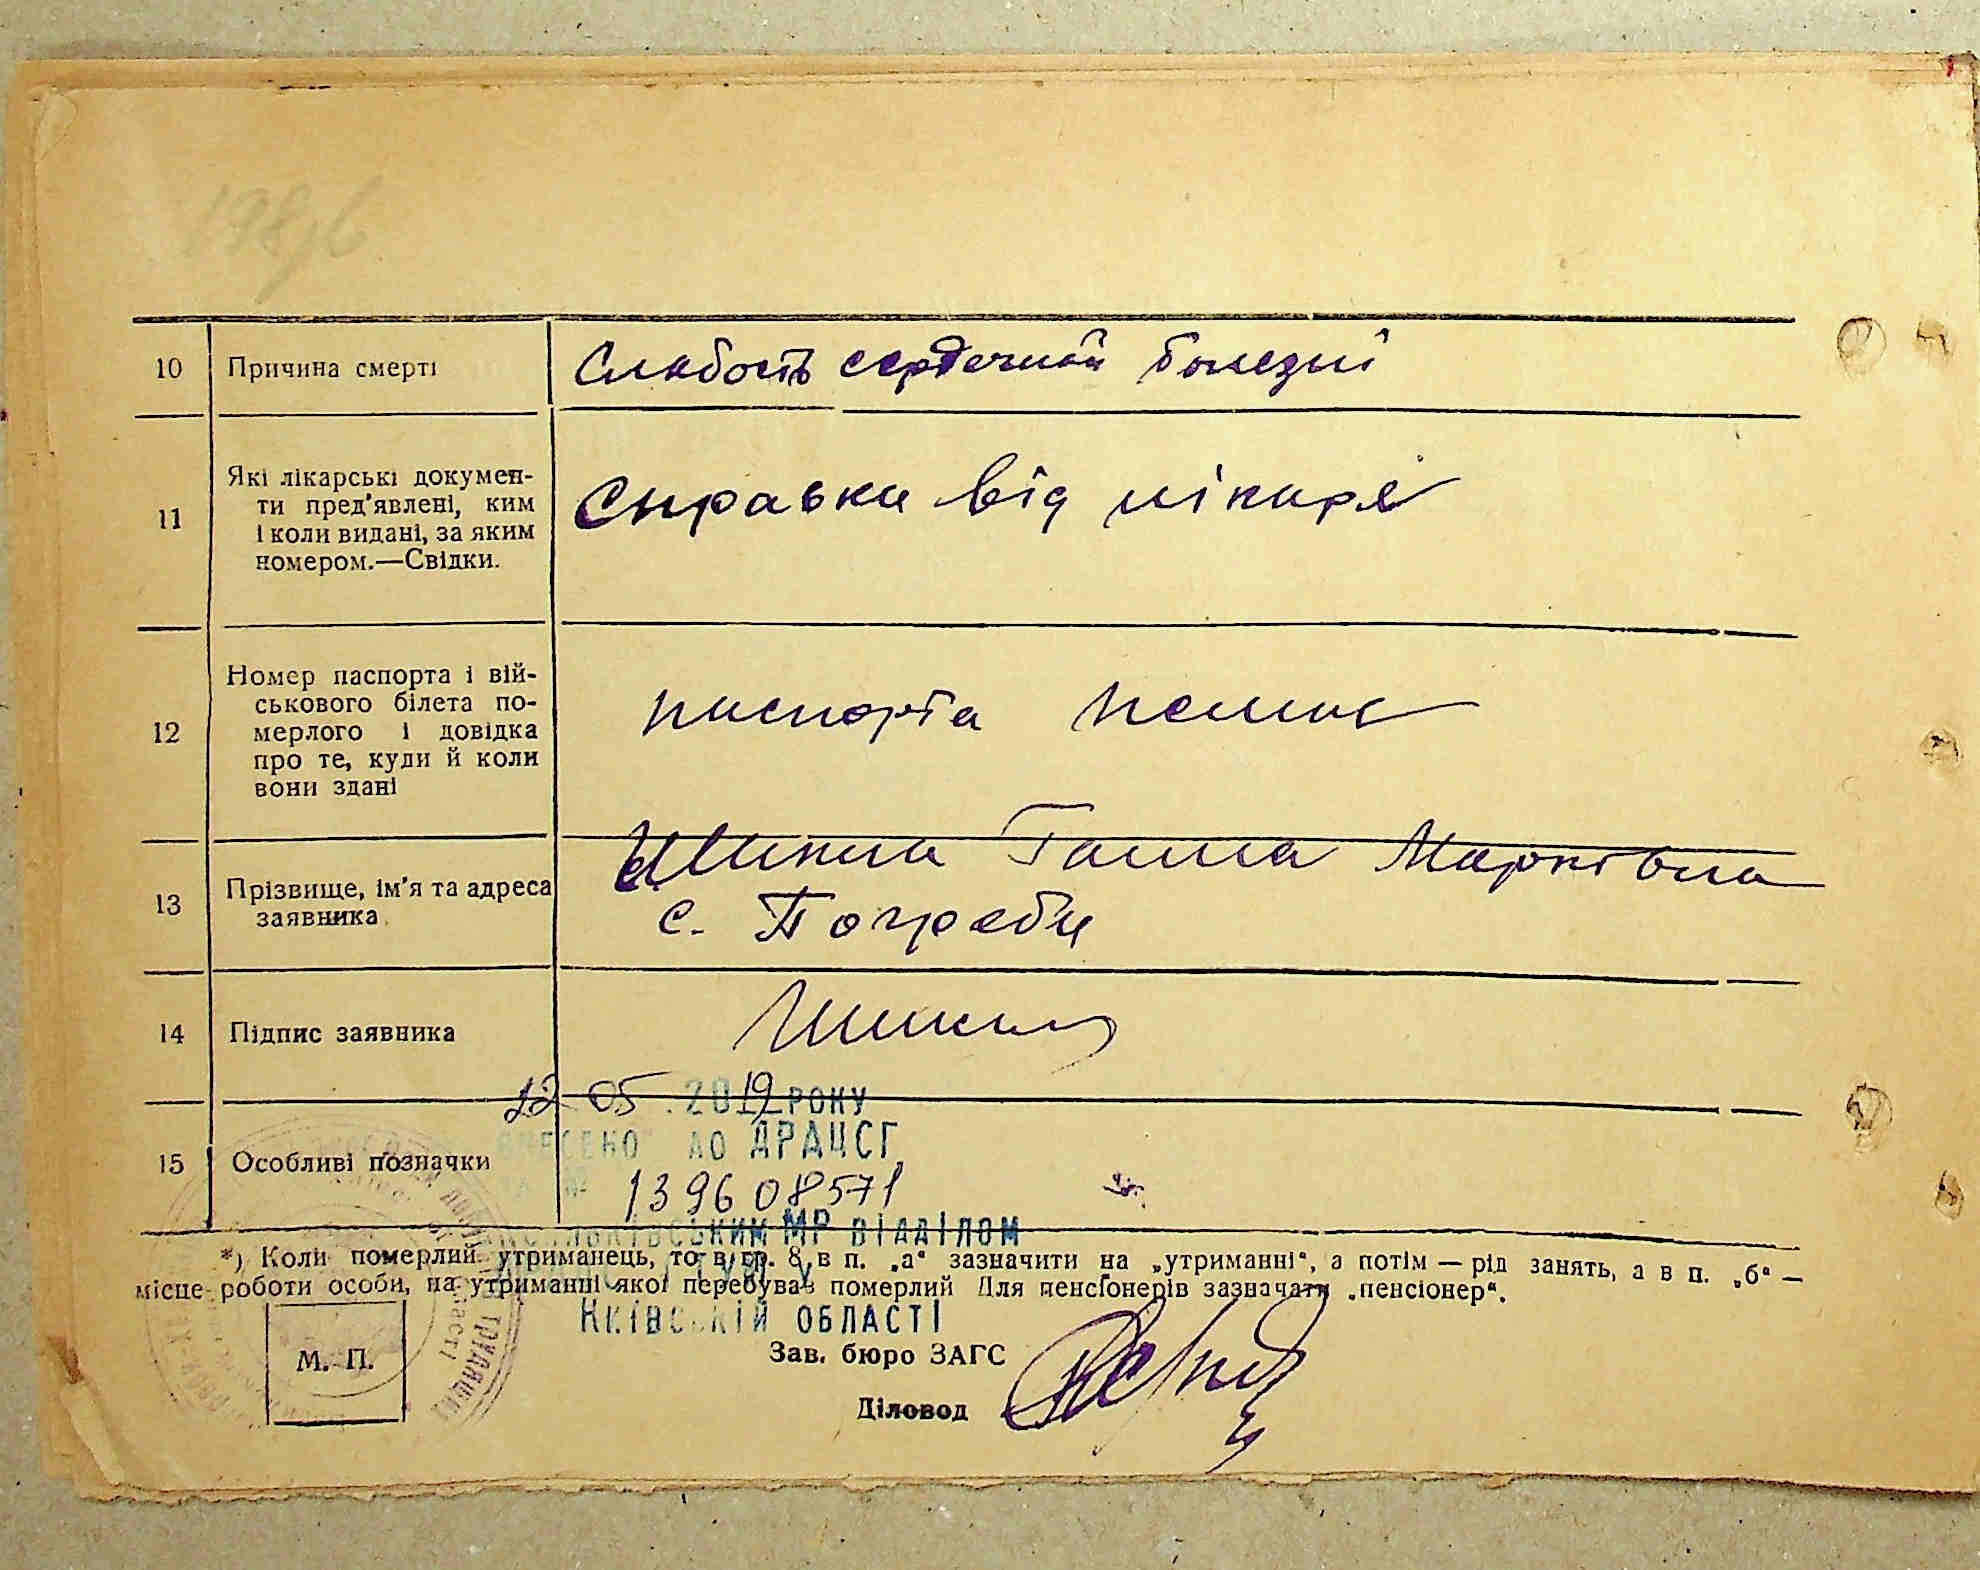 198зв
10 Причина смерті Слабость сердечной болезні
11 Які лікарські докумен-
ти пред'явлені, ким
і коли видані, за яким
номером.—Свідки.
Справка від лікаря
12 Номер паспорта і вій-
ськового білета по-
мерлого і довідка
про те, куди й коли
вони здані
паспорта немає
13 Прізвище, ім'я та адреса
заявника
Шикла Ганна Марківна
с. Погреби
14 Підпис заявника
12 05 .2019 РОКУ
ВНЕСЕНО ДО ДРАЦСГ
15 Особливі позначки
1396 08571
МР ВІДДІЛОМ
*) Коли померлий утриманець, то в гр. 8, в п. „а“ зазначити на „утриманні“, а потім — рід занять, а в п. „б“ —
місце роботи особи, на утриманні якої перебував померлий Для пенсіонерів зазначати „пенсіонер“.
КИЇВСЬКІЙ ОБЛАСТІ
М. П.
Зав. бюро ЗАГС
Діловод